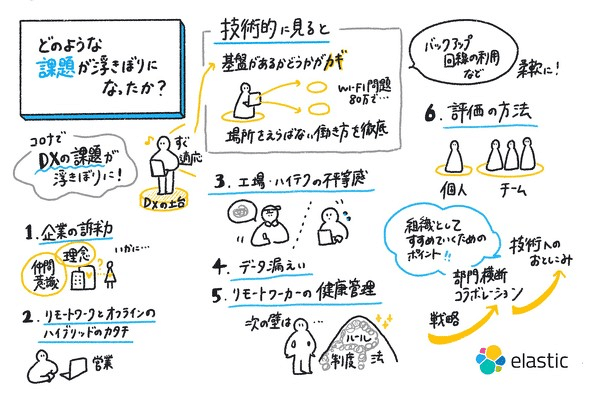 どのような
課題が浮きぼりに
なったか？
コロナで
DXの課題が
浮きぼりに！
すぐ
適応
DXの土台
技術的に見ると
基盤があるかどうかがカギ
Wi-Fi問題
80万で…
場所をえらばない働き方を徹底
バックアップ
回線の利用
など
柔軟に！
1. 企業の訴求力
理念
仲間
意識
いかに…
2. リモートワークとオフラインの
ハイブリッドのカタチ
営業
3. 工場・ハイテクの不平等感
4. データ漏えい
5. リモートワーカーの健康管理
次の壁は…
ルール
制度
法
6. 評価の方法
個人
チーム
組織として
すすめていくための
ポイント!!
戦略
部門横断
コラボレーション
技術への
おとしこみ
elastic